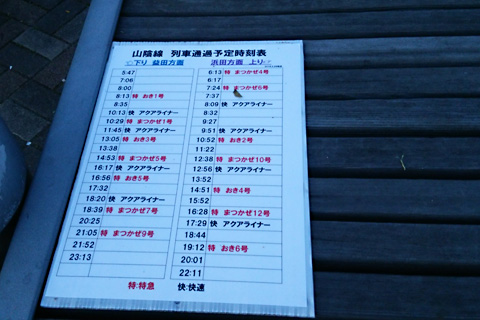 山陰線 列車通過予定時刻表
下り 益田方面
5:47
7:06
8:00
8:13 特 おき1号
8:35
10:13 快 アクアライナー
10:29 特 まつかぜ1号
11:45 快 アクアライナー
13:05 特 おき3号
13:38
14:53 特 まつかぜ5号
16:17 快 アクアライナー
16:56 特 おき5号
17:32
18:20 快 アクアライナー
18:39 特 まつかぜ7号
20:25
21:05 特 まつかぜ9号
21:52
23:13
浜田方面 上り
6:13 特 まつかぜ4号
6:17
7:24 特 まつかぜ6号
7:37
8:09 快 アクアライナー
8:32
9:27
9:51 快 アクアライナー
10:52 特 おき2号
11:22
12:38 特 まつかぜ10号
12:56 快 アクアライナー
13:52
14:51 特 おき4号
15:52
16:28 特 まつかぜ12号
17:29 快 アクアライナー
18:44
19:12 特 おき6号
20:01
22:11
特:特急 快:快速